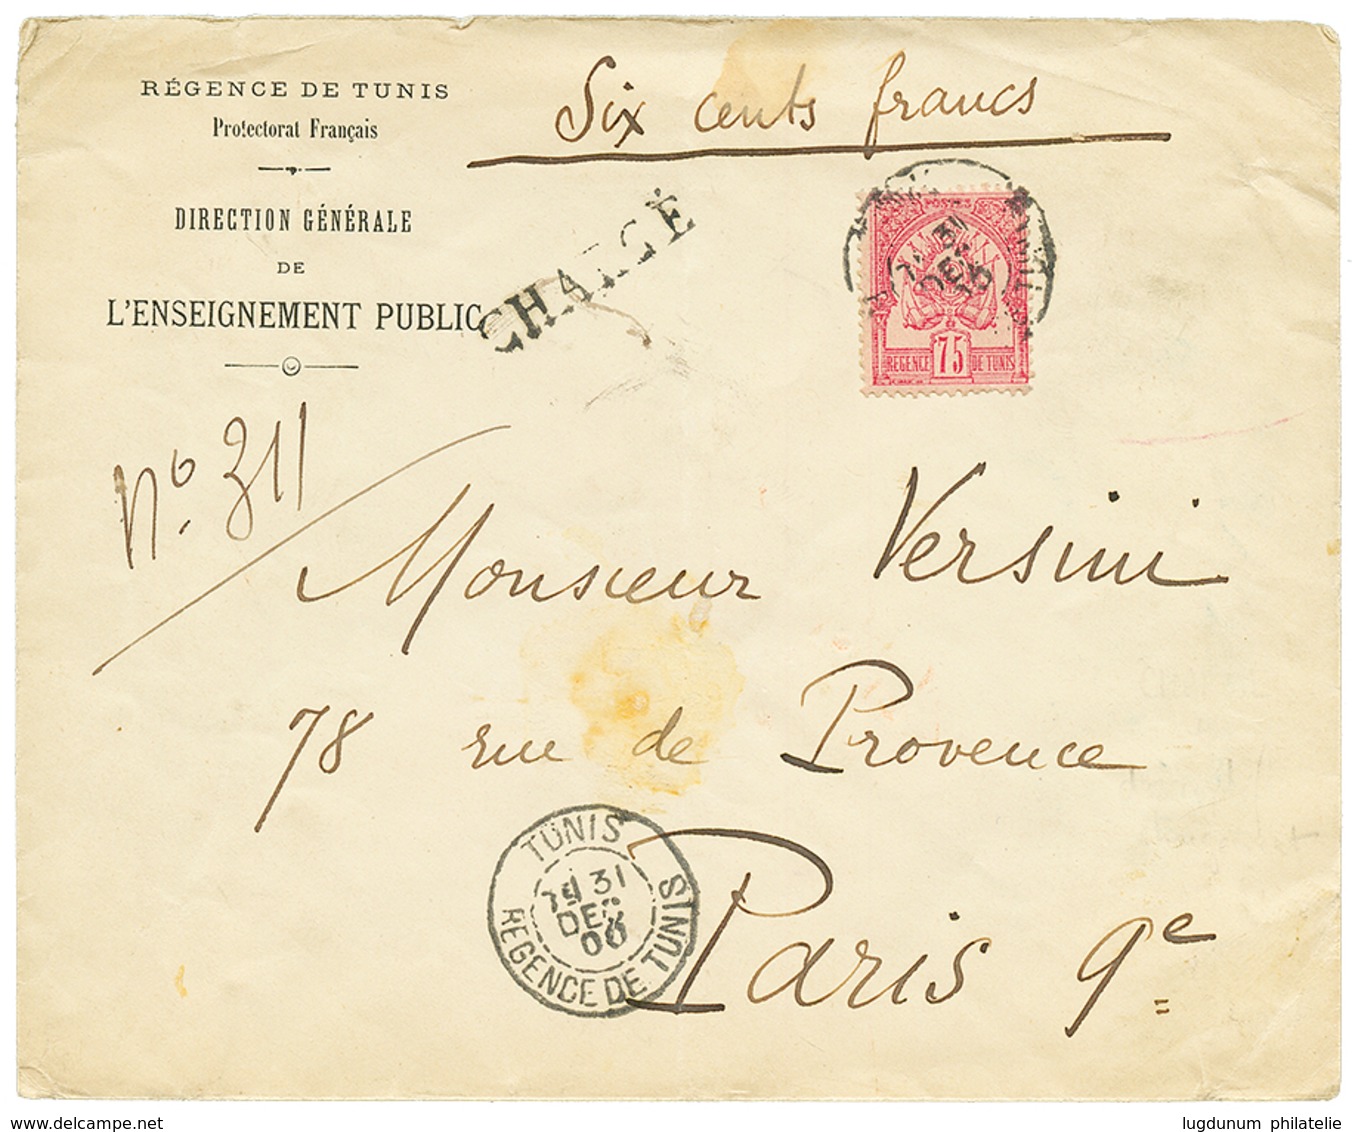 RÉGENCE DE TUNIS
Protectorat Français
DIRECTION GÉNÉRALE
DE
L'ENSEIGNEMENT PUBLIC
Six cents francs
CHARGÉ
POSTES
31
DEC
75
REGENCE DE TUNIS
No. 311
Monsieur Versini
78 rue de Provence
Paris 9e
TUNIS
31
DEC
00
REGENCE DE TUNIS
www.delcampe.net
lugdunum philatelie